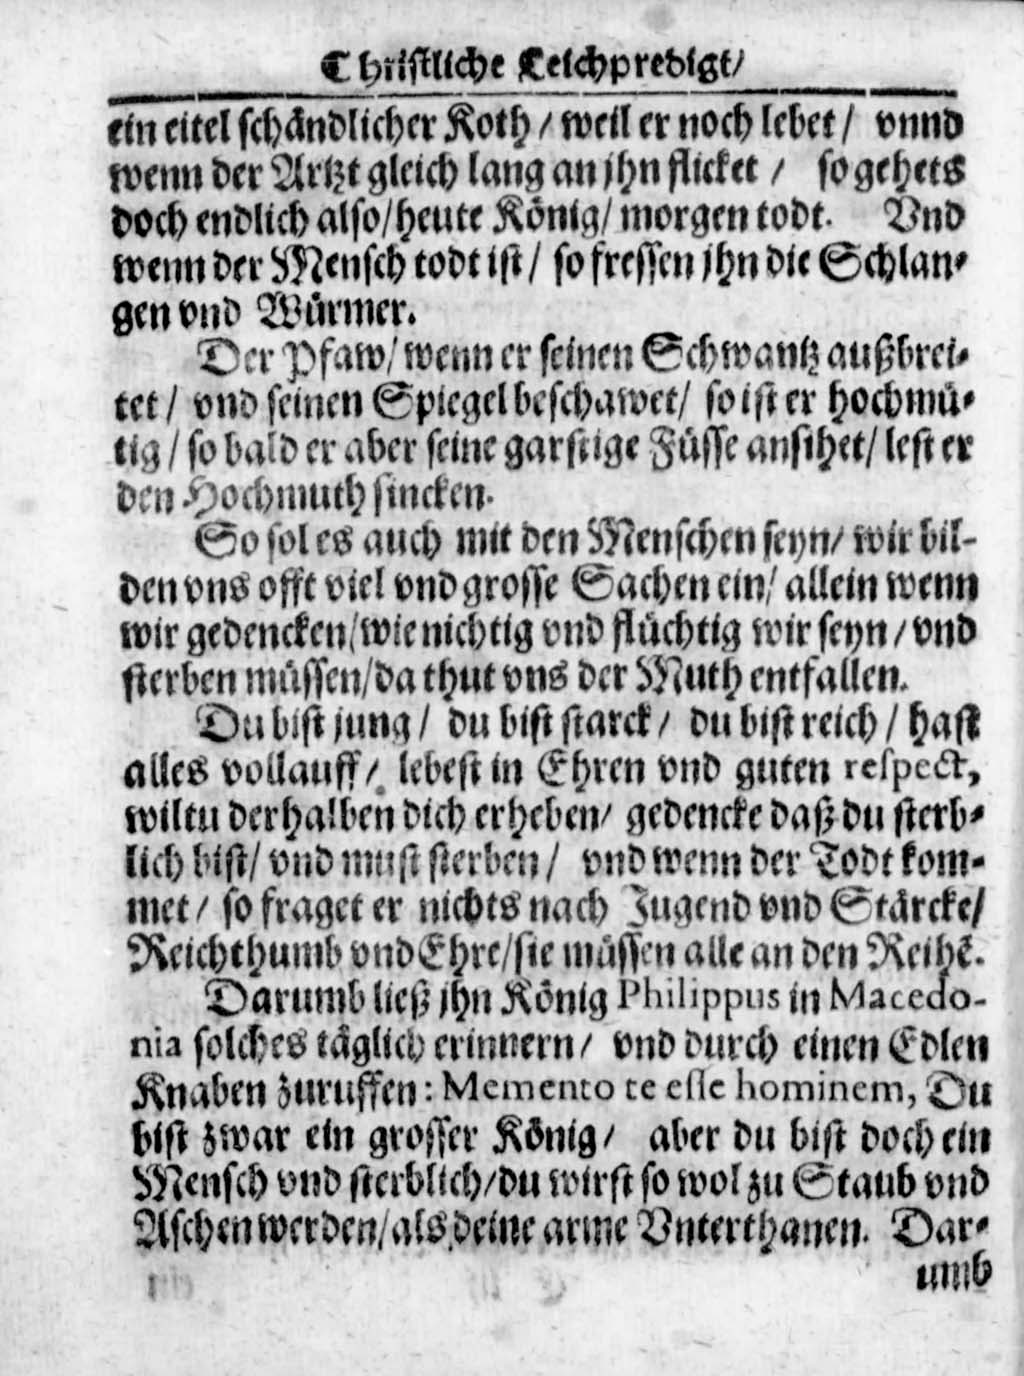 Christliche Leichpredigt/
ein eitel schändlicher Koth / weil er noch lebet / vnnd
wenn der Artzt gleich lang an jhn flicket / so gehets
doch endlich also/heute König/ morgen todt. Vnd
wenn der Mensch todt ist / so fressen jhn die Schlan-
gen vnd Würmer.
Der Pfaw/ wenn er seinen Schwantz außbrei-
tet / vnd seinen Spiegel beschawet/ so ist er hochmü-
tig / so bald er aber seine garstige Füsse ansihet/ lest er
den Hochmuth sincken.
So sol es auch mit den Menschen seyn/ wir bil-
den vns offt viel vnd grosse Sachen ein/ allein wenn
wir gedencken/wie nichtig vnd flüchtig wir seyn / vnd
sterben müssen/da thut vns der Muth entfallen.
Du bist jung / du bist starck / du bist reich / hast
alles vollauff / lebest in Ehren vnd guten respect,
wiltu derhalben dich erheben/ gedencke daß du sterb-
lich bist/ vnd must sterben / vnd wenn der Todt kom-
met / so fraget er nichts nach Jugend vnd Stärcke/
Reichthumb vnd Ehre/sie müssen alle an den Reihē.
Darumb ließ jhn König Philippus in Macedo-
nia solches täglich erinnern / vnd durch einen Edlen
Knaben zuruffen: Memento te esse hominem, Du
bist zwar ein grosser König / aber du bist doch ein
Mensch vnd sterblich/du wirst so wol zu Staub vnd
Aschen werden/als deine arme Vnterthanen. Dar-
umb